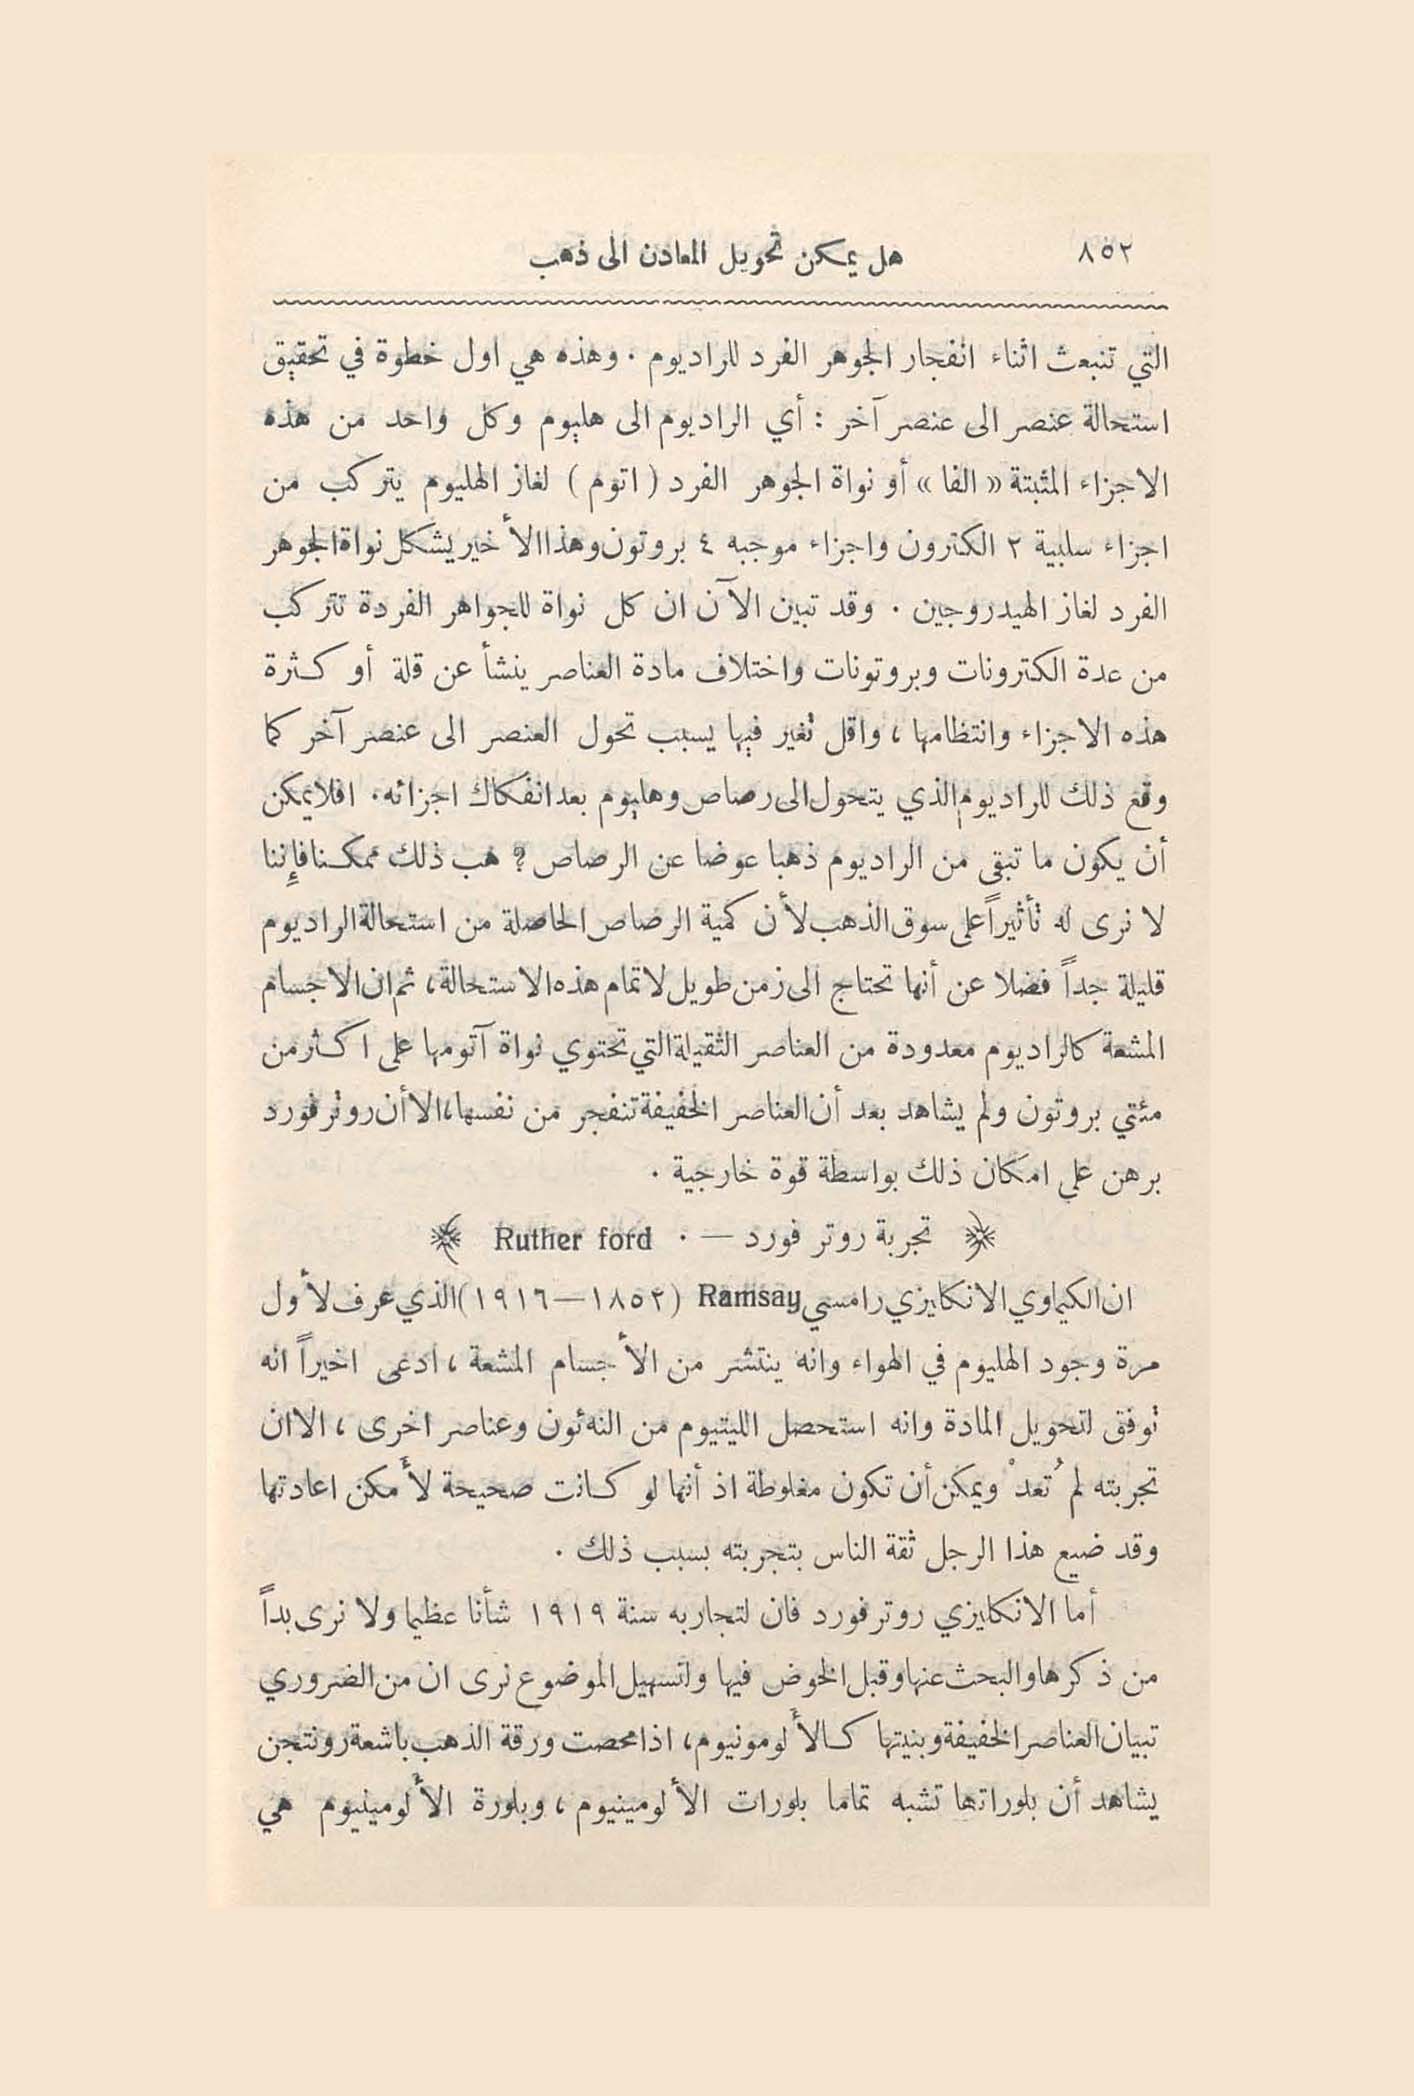 ٨٥٢ هل يمكن تحويل المعادن الى ذهب
التي تنبعث اثناء انفجار الجوهر الفرد للراديوم . وهذه هي اول خطوة في تحقيق
استحالة عنصر الى عنصر آخر : أي الراديوم الى هليوم وكل واحد من هذه
الاجزاء المثبتة « الفا » أو نواة الجوهر الفرد ( اتوم ) لغاز الهليوم يتركب من
اجزاء سلبية ٢ الكترون واجزاء موجبه ٤ بروتون وهذا الأخير يشكل نواة الجوهر
الفرد لغاز الهيدروجين . وقد تبين الآن ان كل نواة للجواهر الفردة تتركب
من عدة الكترونات وبروتونات واختلاف مادة العناصر ينشأ عن قلة أو كثرة
هذه الاجزاء وانتظامها ، واقل تغير فيها يسبب تحول العنصر الى عنصر آخر كما
وقع ذلك للراديوم الذي يتحول الى رصاص وهليوم بعد انفكاك اجزائه . افلا يمكن
أن يكون ما تبقى من الراديوم ذهبا عوضا عن الرصاص ? هب ذلك ممكنا فإننا
لا نرى له تأثيراً على سوق الذهب لأن كمية الرصاص الحاصلة من استحالة الراديوم
قليلة جداً فضلا عن أنها تحتاج الى زمن طويل لاتمام هذه الاستحالة ، ثم ان الاجسام
المشعة كالراديوم معدودة من العناصر الثقيلة التي تحتوي نواة آتومها على اكثر من
مئتي بروتون ولم يشاهد بعد أن العناصر الخفيفة تنفجر من نفسها ، الا أن روترفورد
برهن على امكان ذلك بواسطة قوة خارجية .
تجربة روتر فورد — . Ruther ford
ان الكيماوي الانكليزي رامسي Ramsay ( ١٨٥٢ — ١٩١٦ ) الذي عرف لأول
مرة وجود الهليوم في الهواء وانه ينتشر من الأجسام المشعة ، ادعى اخيراً انه
توفق لتحويل المادة وانه استحصل الليتيوم من النه ئون وعناصر اخرى ، الا ان
تجربته لم تُعدْ ويمكن أن تكون مغلوطة اذ أنها لو كانت صحيحة لأمكن اعادتها
وقد ضيع هذا الرجل ثقة الناس بتجربته بسبب ذلك .
أما الانكليزي روتر فورد فان لتجاربه سنة ١٩١٩ شأنا عظيما ولا نرى بداً
من ذكرها والبحث عنها وقبل الخوض فيها ولتسهيل الموضوع نرى ان من الضروري
تبيان العناصر الخفيفة وبنيتها كالألومونيوم ، اذا محصت ورقة الذهب باشعة رونتجن
يشاهد أن بلوراتها تشبه تماما بلورات الألومينيوم ، وبلورة الألومينيوم هي